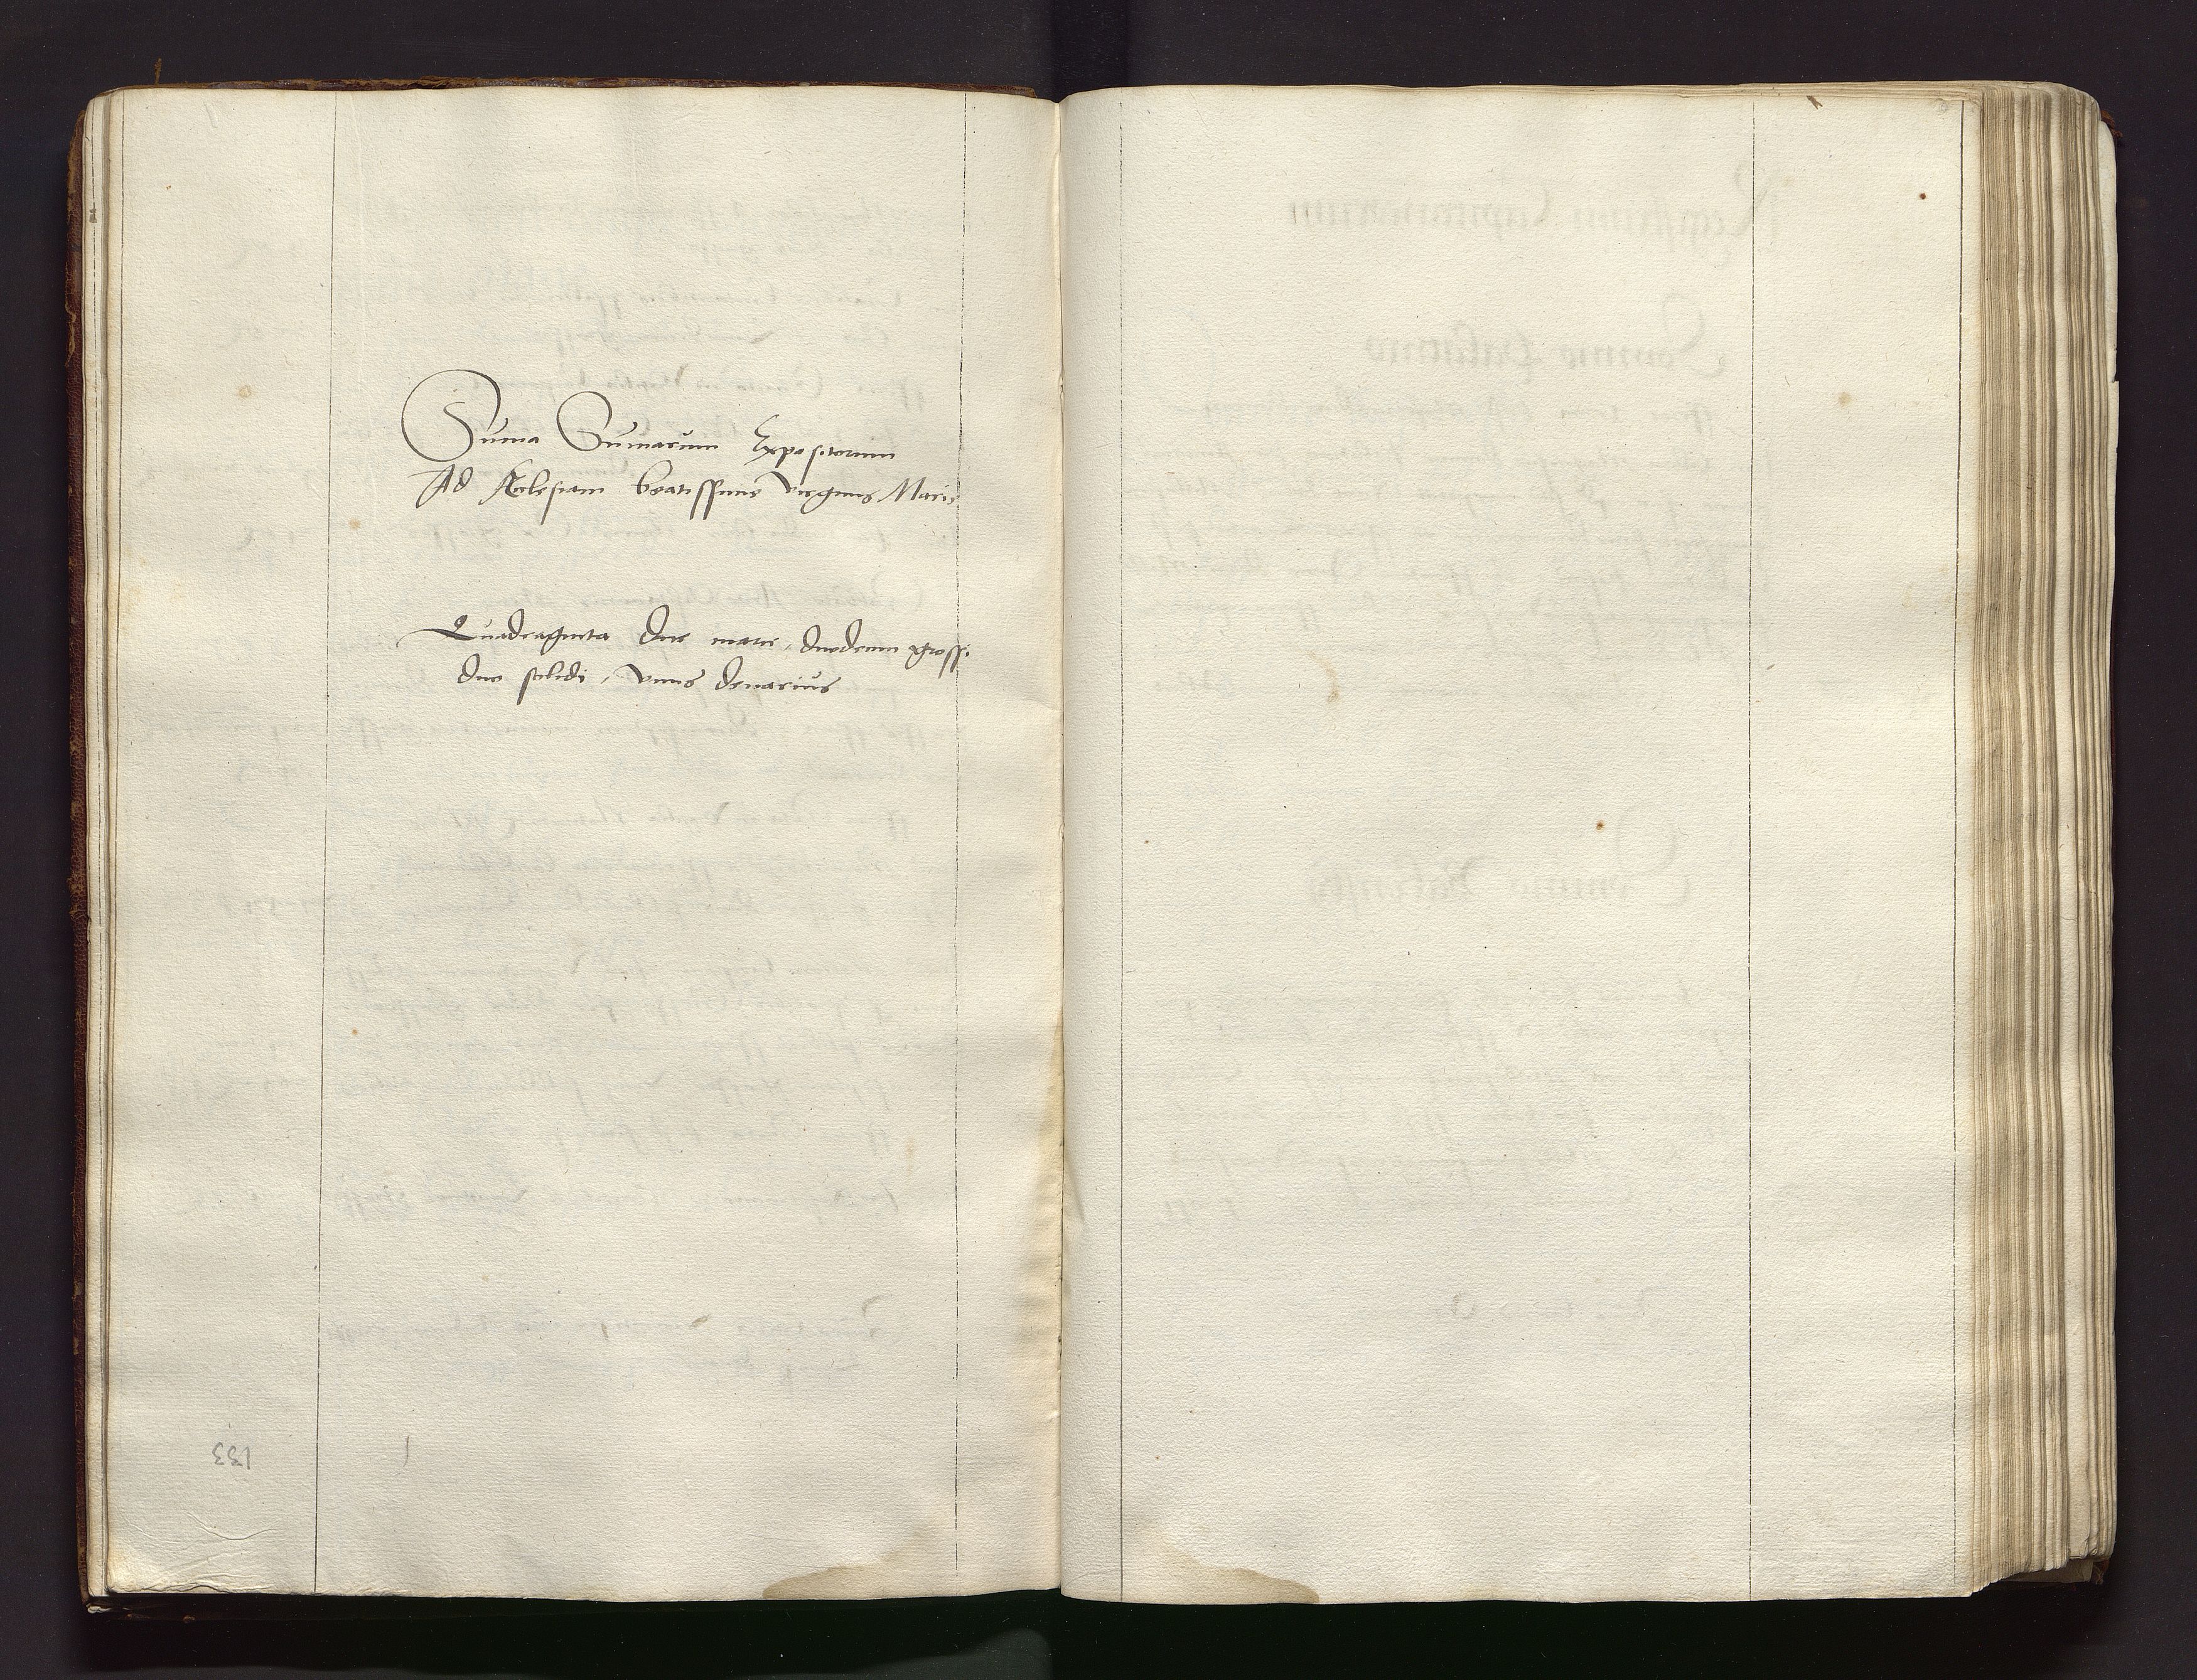 Suma Sumarum Expositorum
Ad Ecclesiam beatissime virginis Marie
Quadraginta due marce, duodecim grossi
duo solidi, vnus denarius
133